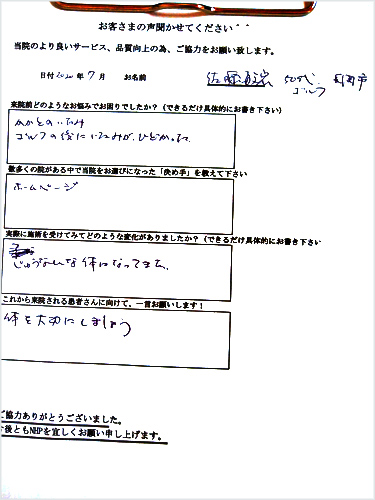 お客さまの声聞かせてください^^
当院のより良いサービス、品質向上の為、ご協力をお願い致します。
日付2020年7月 お名前 50代
ゴルフ
来院前どのようなお悩みでお困りでしたか?(できるだけ具体的にお書き下さい)
かかとのいたみ
ゴルフの後にいたみが、ひどかった。
数多くの院がある中で当院をお選びになった「決め手」を教えて下さい
ホームページ
実際に施術を受けてみてどのような変化がありましたか?(できるだけ具体的にお書き下さい
じゅうなんな体になってきた。
これから来院される患者さんに向けて、一言お願いします!
体を大切にしましょう
ご協力ありがとうございました。
今後ともNHPを宜しくお願い申し上げます。